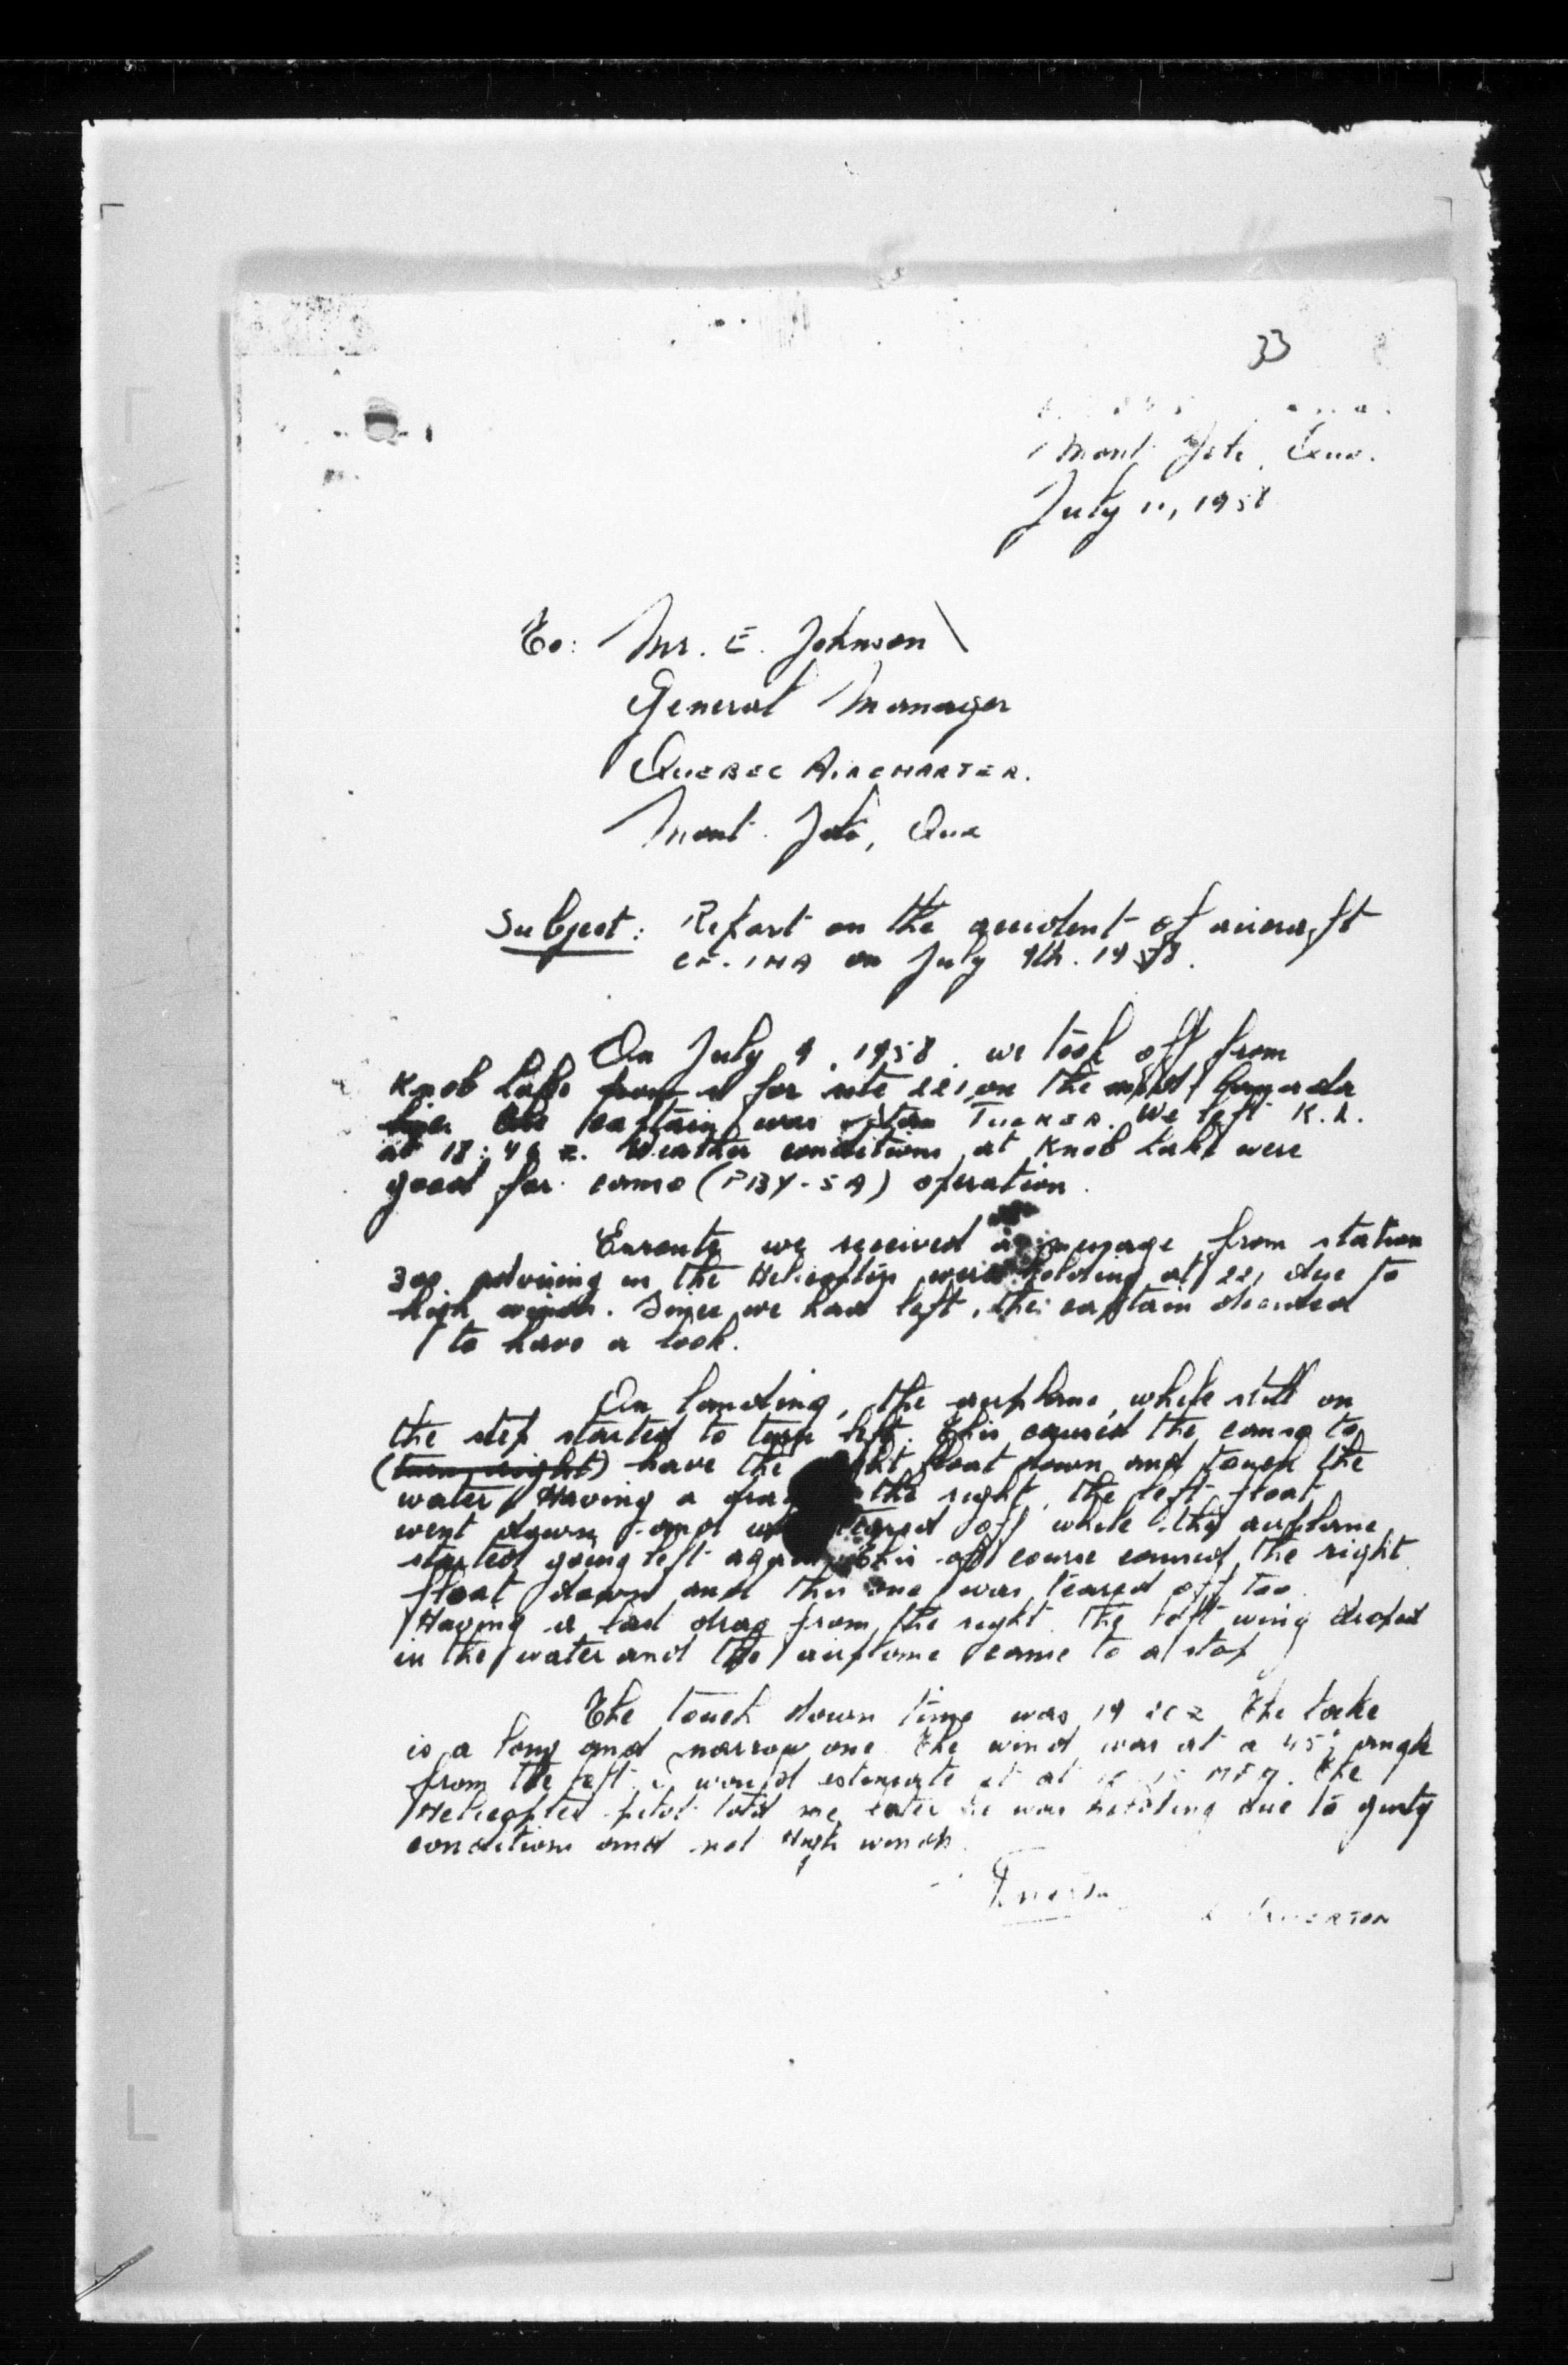 33
Mont Joli, Que.
July 11, 1958
To: Mr. E. Johnson
General Manager
QUEBEC AIRCHARTER.
Mont Joli, Que
Subject: Report on the accident of aircraft
CF-IHA on July 9th. 1958.
On July 9, 1958, we took off from
Knob Lake for site 221 on the mid Canada
line. The captain was TUCKER. We left K.L.
at 18:46 z. Weather conditions at Knob Lake were
good for canso (PBY-5A) operation.
Enroute we received a message from station
300 advising us the Helicopters were holding at 221 due to
high winds. Since we had left, the captain decided
to have a look.
On landing, the airplane, while still on
the step started to turn left. This caused the canso to
(turn right) have the right float down and touch the
water. Having a drag the right, the left float
went down and teared off while the airplane
started going left again. This off course caused the right
float down and this one was teared off too.
Having a last drag from the right the left wing droped
in the water and the airplane came to a stop
The touch down time was 19 z The lake
is a long and narrow one. The wind was at a 45° angle
from the left. I would estimate it at MPH. The
Helicopter pilot told me later he was holding due to gusty
conditions and not high winds.